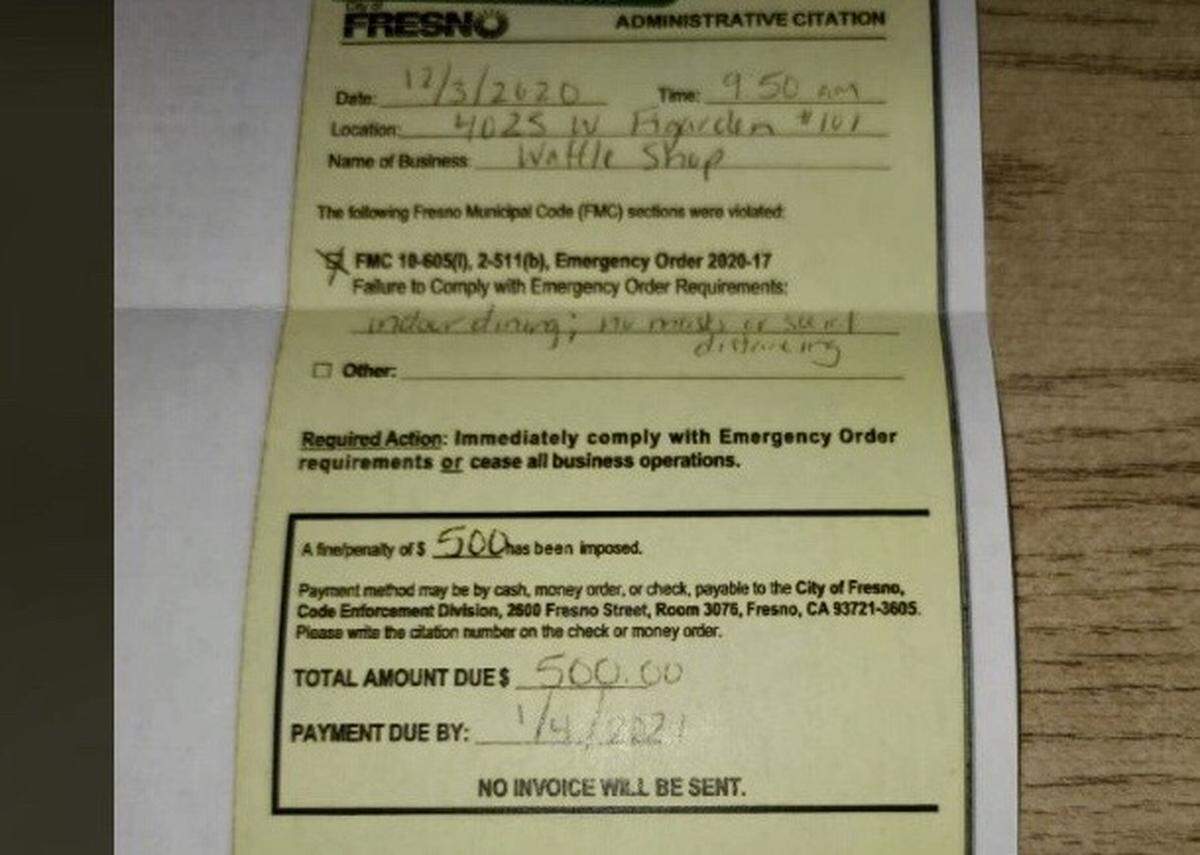 City of
FRESNO
ADMINISTRATIVE CITATION
Date: 12/3/2020 Time: 9 50 am
Location: 4025 W Figarden #101
Name of Business: Waffle Shop
The following Fresno Municipal Code (FMC) sections were violated:
FMC 10-605(l), 2-511(b), Emergency Order 2020-17
Failure to Comply with Emergency Order Requirements:
indoor dining; no masks or social
distancing
Other:
Required Action: Immediately comply with Emergency Order
requirements or cease all business operations.
A fine/penalty of $ 500 has been imposed.
Payment method may be by cash, money order, or check, payable to the City of Fresno,
Code Enforcement Division, 2600 Fresno Street, Room 3076, Fresno, CA 93721-3605.
Please write the citation number on the check or money order.
TOTAL AMOUNT DUE $ 500.00
PAYMENT DUE BY: 1/4/2021
NO INVOICE WILL BE SENT.